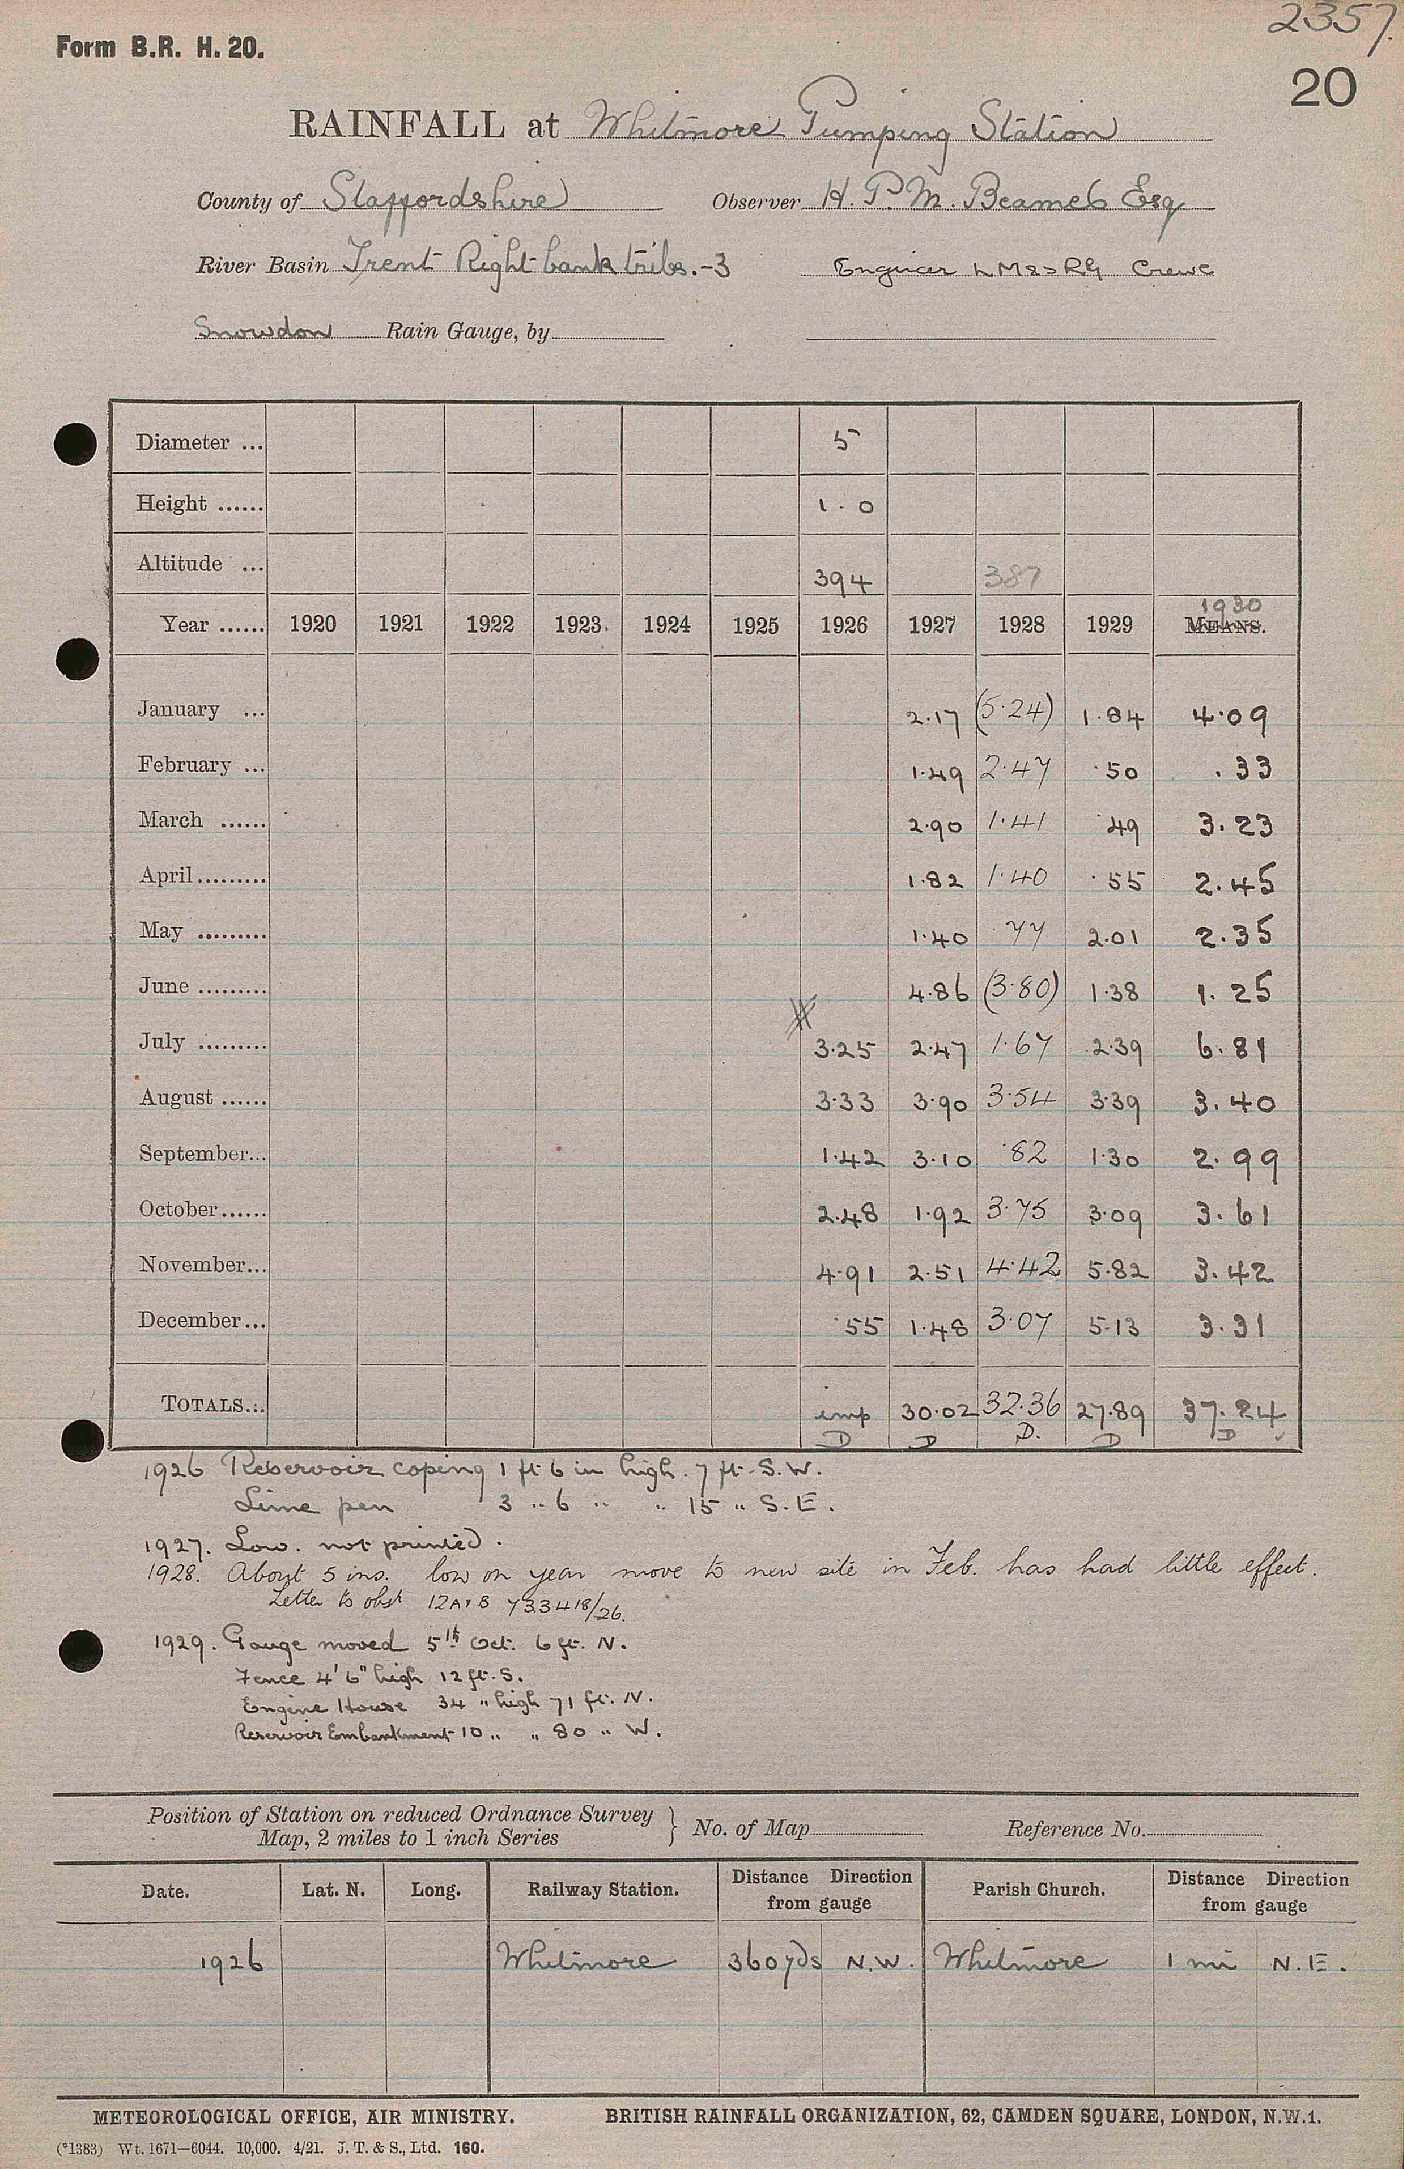 2357.
Form B.R. H. 20.
20
RAINFALL at Whitmore Pumping Station
County of Staffordshire Observer H. P. M. Beames Esq
River Basin Trent Right bank tribs.-3 Engineer LM&SRG Crewe
Snowdon Rain Gauge, by
Diameter ... 5
Height ...... 1.0
Altitude ... 394 387
1930
Year ...... 1920 1921 1922 1923 1924 1925 1926 1927 1928 1929 MEANS.
January ... 2.17 (5.24) 1.84 4.09
February ... 1.49 2.47 .50 .33
March ...... 2.90 1.41 .49 3.23
April......... 1.82 1.40 .55 2.45
May ......... 1.40 .77 2.01 2.35
June ......... 4.86 (3.80) 1.38 1.25
July ......... 3.25 2.47 1.67 2.39 6.81
August ...... 3.33 3.90 3.54 3.39 3.40
September... 1.42 3.10 .82 1.30 2.99
October...... 2.48 1.92 3.75 3.09 3.61
November... 4.91 2.51 4.42 5.82 3.42
December... .55 1.48 3.07 5.13 3.31
TOTALS... imp 30.02 32.36 27.89 37.24
D D D. D D
1926 Reservoir coping 1 ft 6 in high. 7 ft. S.W.
Lime pen 3 " 6 " " 15 " S.E.
1927. Low. not printed.
1928. About 5 ins. low on year move to new site in Feb. has had little effect.
Letter to obsr 12A+B 733418/26.
1929. Gauge moved 5th Oct. 6 ft. N.
Fence 4' 6" high 12 ft. S.
Engine House 34 " high 71 ft. N.
Reservoir Embankment 10 " " 80 " W.
Position of Station on reduced Ordnance Survey
Map, 2 miles to 1 inch Series } No. of Map Reference No.
Date. Lat. N. Long. Railway Station. Distance Direction from gauge Parish Church. Distance Direction from gauge
1926 Whitmore 360 yds N.W. Whitmore 1 mi N.E.
METEOROLOGICAL OFFICE, AIR MINISTRY. BRITISH RAINFALL ORGANIZATION, 62, CAMDEN SQUARE, LONDON, N.W.1.
(*1383) Wt. 1671—6044. 10,000. 4/21. J. T. & S., Ltd. 160.